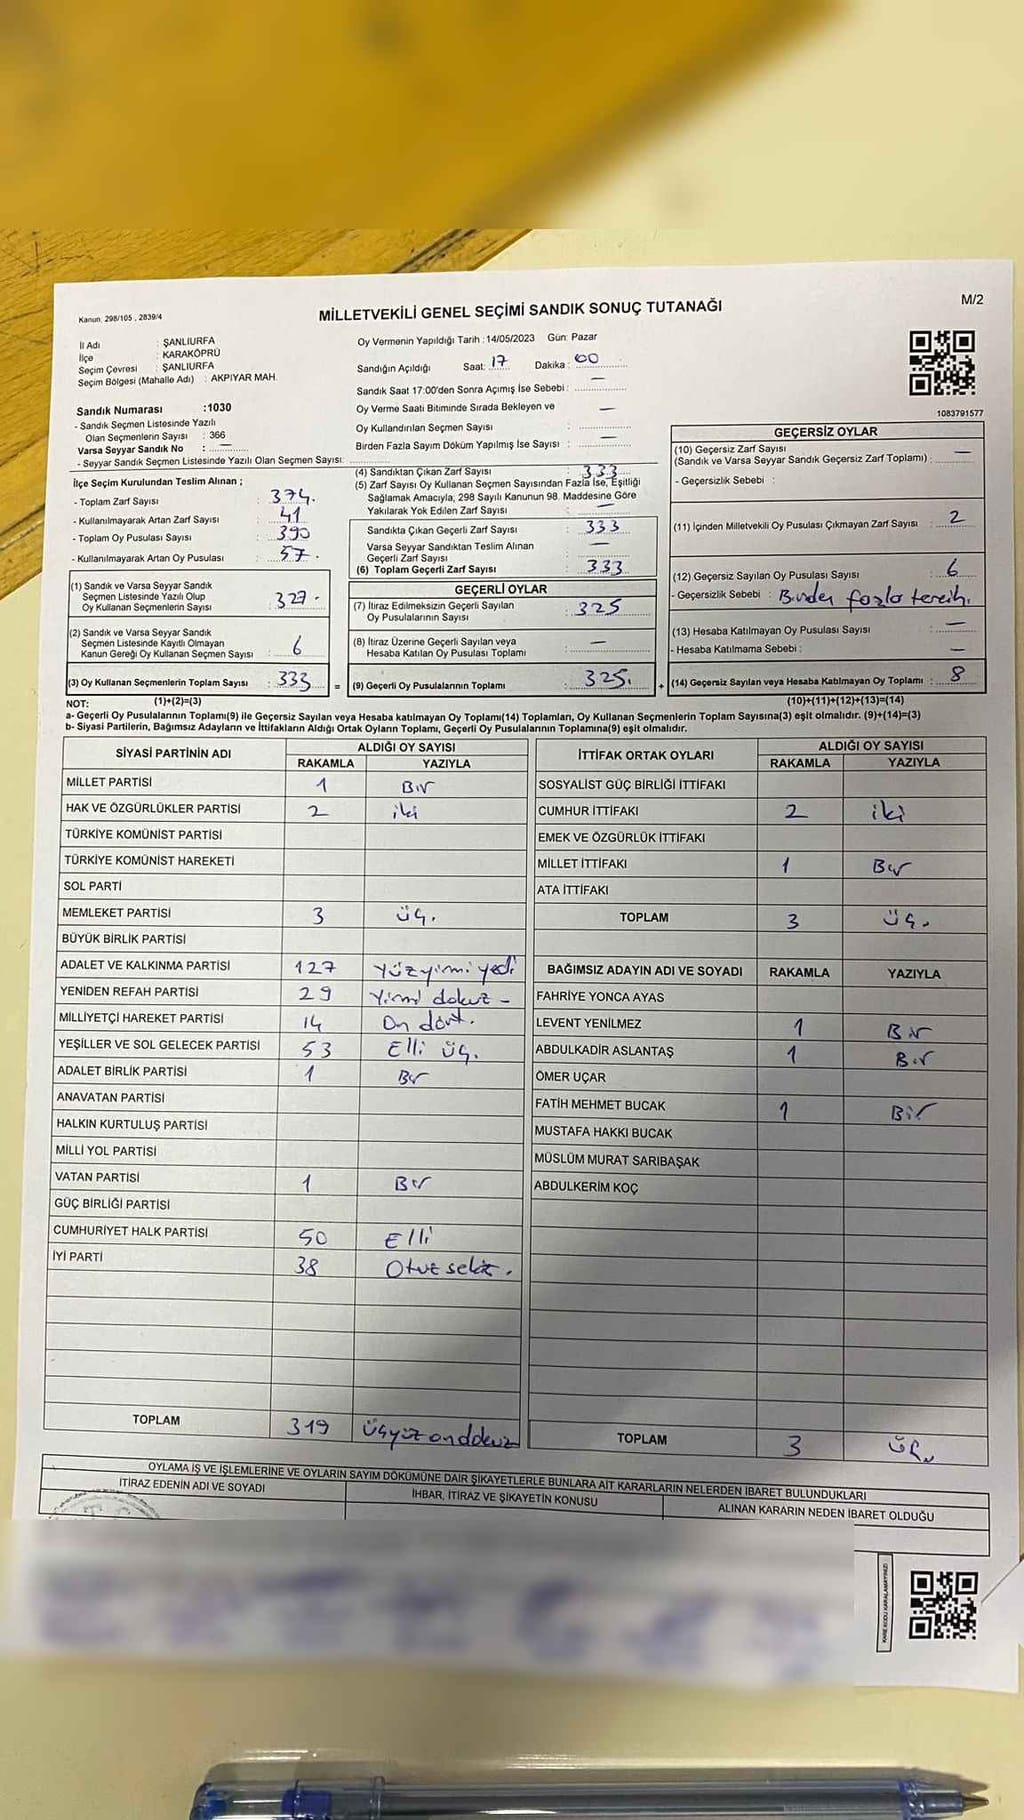 Kanun. 298/105 , 2839/4
MİLLETVEKİLİ GENEL SEÇİMİ SANDIK SONUÇ TUTANAĞI
M/2
İl Adı : ŞANLIURFA
İlçe : KARAKÖPRÜ
Seçim Çevresi : ŞANLIURFA
Seçim Bölgesi (Mahalle Adı) : AKPIYAR MAH.
Sandık Numarası :1030
- Sandık Seçmen Listesinde Yazılı
Olan Seçmenlerin Sayısı : 366
Varsa Seyyar Sandık No : —
- Seyyar Sandık Seçmen Listesinde Yazılı Olan Seçmen Sayısı:
İlçe Seçim Kurulundan Teslim Alınan ;
- Toplam Zarf Sayısı : 374.
- Kullanılmayarak Artan Zarf Sayısı : 41
- Toplam Oy Pusulası Sayısı : 390
- Kullanılmayarak Artan Oy Pusulası : 57.
(1) Sandık ve Varsa Seyyar Sandık
Seçmen Listesinde Yazılı Olup
Oy Kullanan Seçmenlerin Sayısı : 327.
(2) Sandık ve Varsa Seyyar Sandık
Seçmen Listesinde Kayıtlı Olmayan
Kanun Gereği Oy Kullanan Seçmen Sayısı : 6
(3) Oy Kullanan Seçmenlerin Toplam Sayısı : 333 =
Oy Vermenin Yapıldığı Tarih :14/05/2023 Gün: Pazar
Sandığın Açıldığı Saat: 17 Dakika : 00
Sandık Saat 17:00'den Sonra Açımış İse Sebebi : —
Oy Verme Saati Bitiminde Sırada Bekleyen ve
Oy Kullandırılan Seçmen Sayısı : —
Birden Fazla Sayım Döküm Yapılmış İse Sayısı : —
(4) Sandıktan Çıkan Zarf Sayısı : 333
(5) Zarf Sayısı Oy Kullanan Seçmen Sayısından Fazla İse, Eşitliği
Sağlamak Amacıyla, 298 Sayılı Kanunun 98. Maddesine Göre
Yakılarak Yok Edilen Zarf Sayısı : —
Sandıkta Çıkan Geçerli Zarf Sayısı : 333
Varsa Seyyar Sandıktan Teslim Alınan
Geçerli Zarf Sayısı : —
(6) Toplam Geçerli Zarf Sayısı : 333
GEÇERLİ OYLAR
(7) İtiraz Edilmeksizin Geçerli Sayılan
Oy Pusulalarının Sayısı : 325
(8) İtiraz Üzerine Geçerli Sayılan veya
Hesaba Katılan Oy Pusulası Toplamı : —
(9) Geçerli Oy Pusulalarının Toplamı : 325. +
1083791577
GEÇERSİZ OYLAR
(10) Geçersiz Zarf Sayısı
(Sandık ve Varsa Seyyar Sandık Geçersiz Zarf Toplamı) : —
- Geçersizlik Sebebi :
(11) İçinden Milletvekili Oy Pusulası Çıkmayan Zarf Sayısı : 2
(12) Geçersiz Sayılan Oy Pusulası Sayısı : 6
- Geçersizlik Sebebi : Birden fazla tercih.
(13) Hesaba Katılmayan Oy Pusulası Sayısı : —
- Hesaba Katılmama Sebebi : —
(14) Geçersiz Sayılan veya Hesaba Katılmayan Oy Toplamı : 8
NOT: (1)+(2)=(3) (10)+(11)+(12)+(13)=(14)
a- Geçerli Oy Pusulalarının Toplamı(9) ile Geçersiz Sayılan veya Hesaba katılmayan Oy Toplamı(14) Toplamları, Oy Kullanan Seçmenlerin Toplam Sayısına(3) eşit olmalıdır. (9)+(14)=(3)
b- Siyasi Partilerin, Bağımsız Adayların ve İttifakların Aldığı Ortak Oyların Toplamı, Geçerli Oy Pusulalarının Toplamına(9) eşit olmalıdır.
SİYASİ PARTİNİN ADI ALDIĞI OY SAYISI
RAKAMLA YAZIYLA
MİLLET PARTİSİ 1 Bir
HAK VE ÖZGÜRLÜKLER PARTİSİ 2 iki
TÜRKİYE KOMÜNİST PARTİSİ
TÜRKİYE KOMÜNİST HAREKETİ
SOL PARTİ
MEMLEKET PARTİSİ 3 üç.
BÜYÜK BİRLİK PARTİSİ
ADALET VE KALKINMA PARTİSİ 127 Yüzyirmiyedi
YENİDEN REFAH PARTİSİ 29 Yirmi dokuz -
MİLLİYETÇİ HAREKET PARTİSİ 14 On dört.
YEŞİLLER VE SOL GELECEK PARTİSİ 53 Elli üç.
ADALET BİRLİK PARTİSİ 1 Bir
ANAVATAN PARTİSİ
HALKIN KURTULUŞ PARTİSİ
MİLLİ YOL PARTİSİ
VATAN PARTİSİ 1 Bir
GÜÇ BİRLİĞİ PARTİSİ
CUMHURİYET HALK PARTİSİ 50 Elli
İYİ PARTİ 38 Otuz sekiz.
TOPLAM 319 Üçyüzondokuz
İTTİFAK ORTAK OYLARI ALDIĞI OY SAYISI
RAKAMLA YAZIYLA
SOSYALİST GÜÇ BİRLİĞİ İTTİFAKI
CUMHUR İTTİFAKI 2 iki
EMEK VE ÖZGÜRLÜK İTTİFAKI
MİLLET İTTİFAKI 1 Bir
ATA İTTİFAKI
TOPLAM 3 üç.
BAĞIMSIZ ADAYIN ADI VE SOYADI RAKAMLA YAZIYLA
FAHRİYE YONCA AYAS
LEVENT YENİLMEZ 1 Bir
ABDULKADİR ASLANTAŞ 1 Bir
ÖMER UÇAR
FATİH MEHMET BUCAK 1 Bir
MUSTAFA HAKKI BUCAK
MÜSLÜM MURAT SARIBAŞAK
ABDULKERİM KOÇ
TOPLAM 3 üç
OYLAMA İŞ VE İŞLEMLERİNE VE OYLARIN SAYIM DÖKÜMÜNE DAİR ŞİKAYETLERLE BUNLARA AİT KARARLARIN NELERDEN İBARET BULUNDUKLARI
İTİRAZ EDENİN ADI VE SOYADI
İHBAR, İTİRAZ VE ŞİKAYETİN KONUSU
ALINAN KARARIN NEDEN İBARET OLDUĞU
KAREKODU KARALAMAYINIZ!